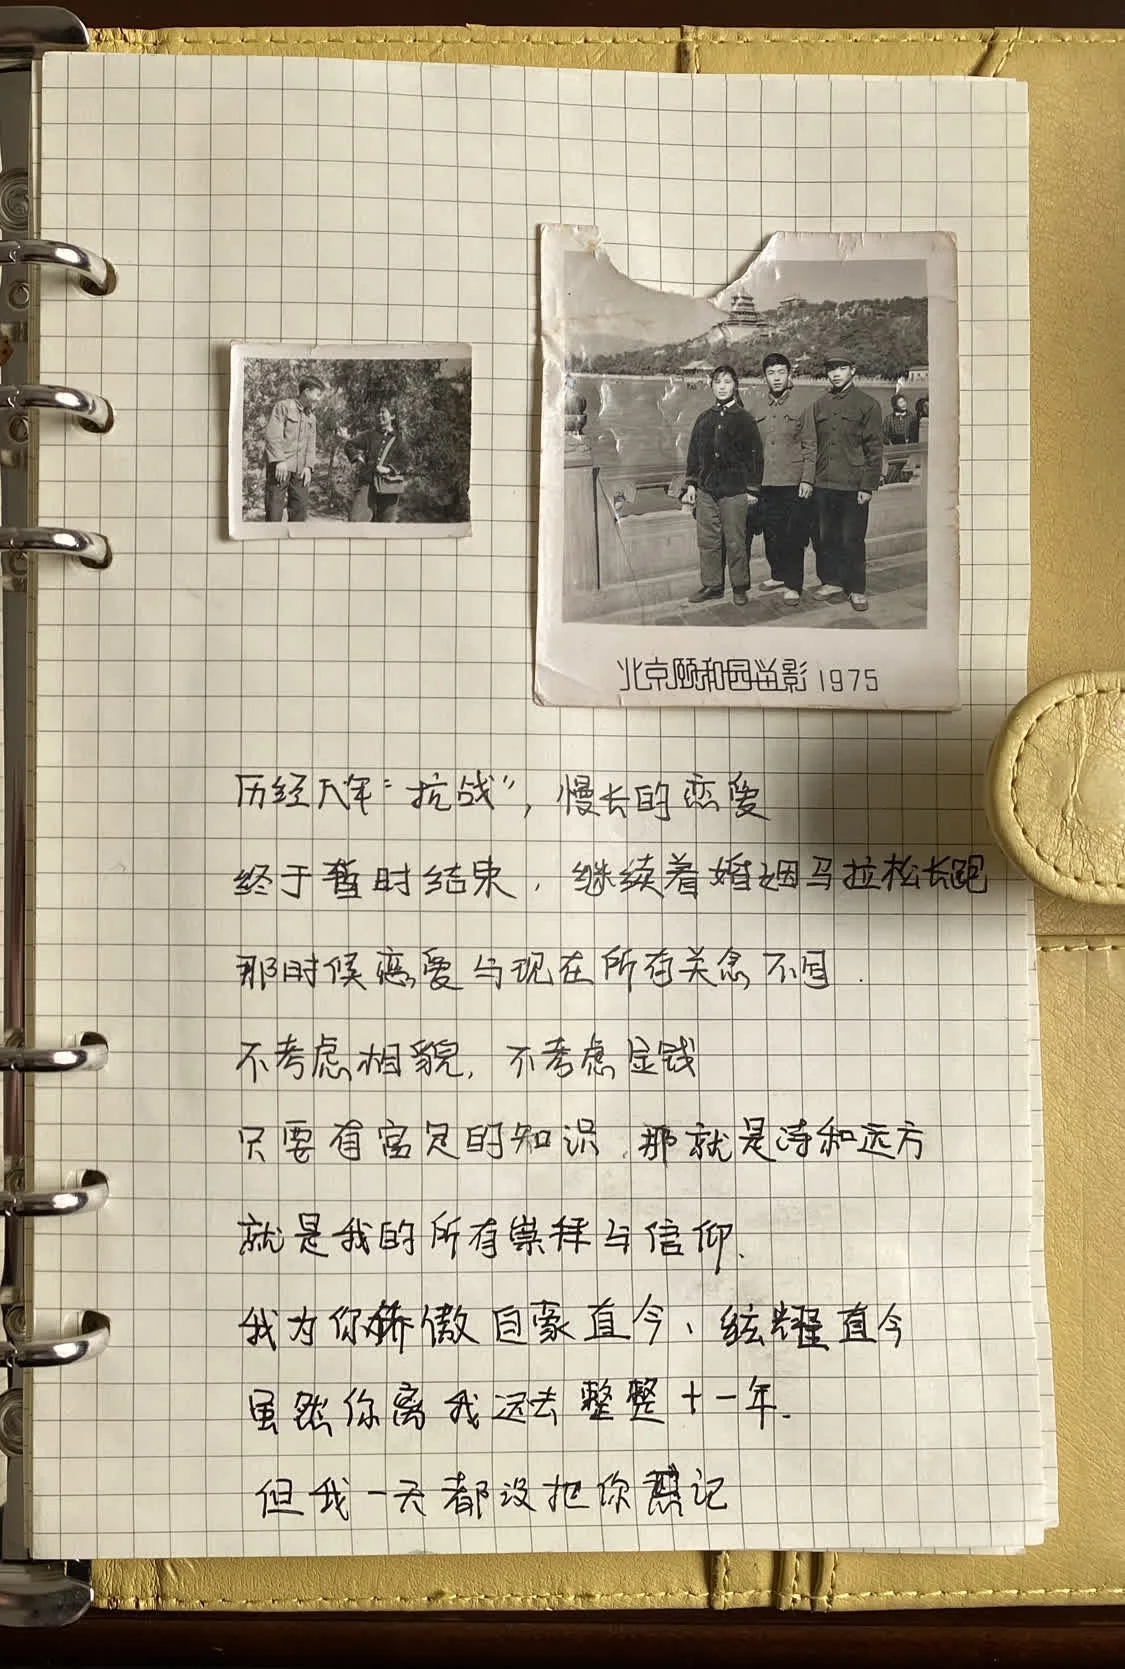 北京颐和园留影 1975
历经八年“抗战”，慢长的恋爱
终于暂时结束，继续着婚姻马拉松长跑
那时候恋爱与现在所有关念不同.
不考虑相貌，不考虑金钱
只要有富足的知识，那就是诗和远方
就是我的所有崇拜与信仰.
我为你骄傲自豪直今、炫耀直今
虽然你离我远去整整十一年.
但我一天都没把你忘记